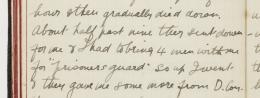 hours & then gradually died down.
About half past nine they sent down
for me & I had to bring 4 men with me
for "prisoners guard" so up I went
& they gave me some more from D. Com-